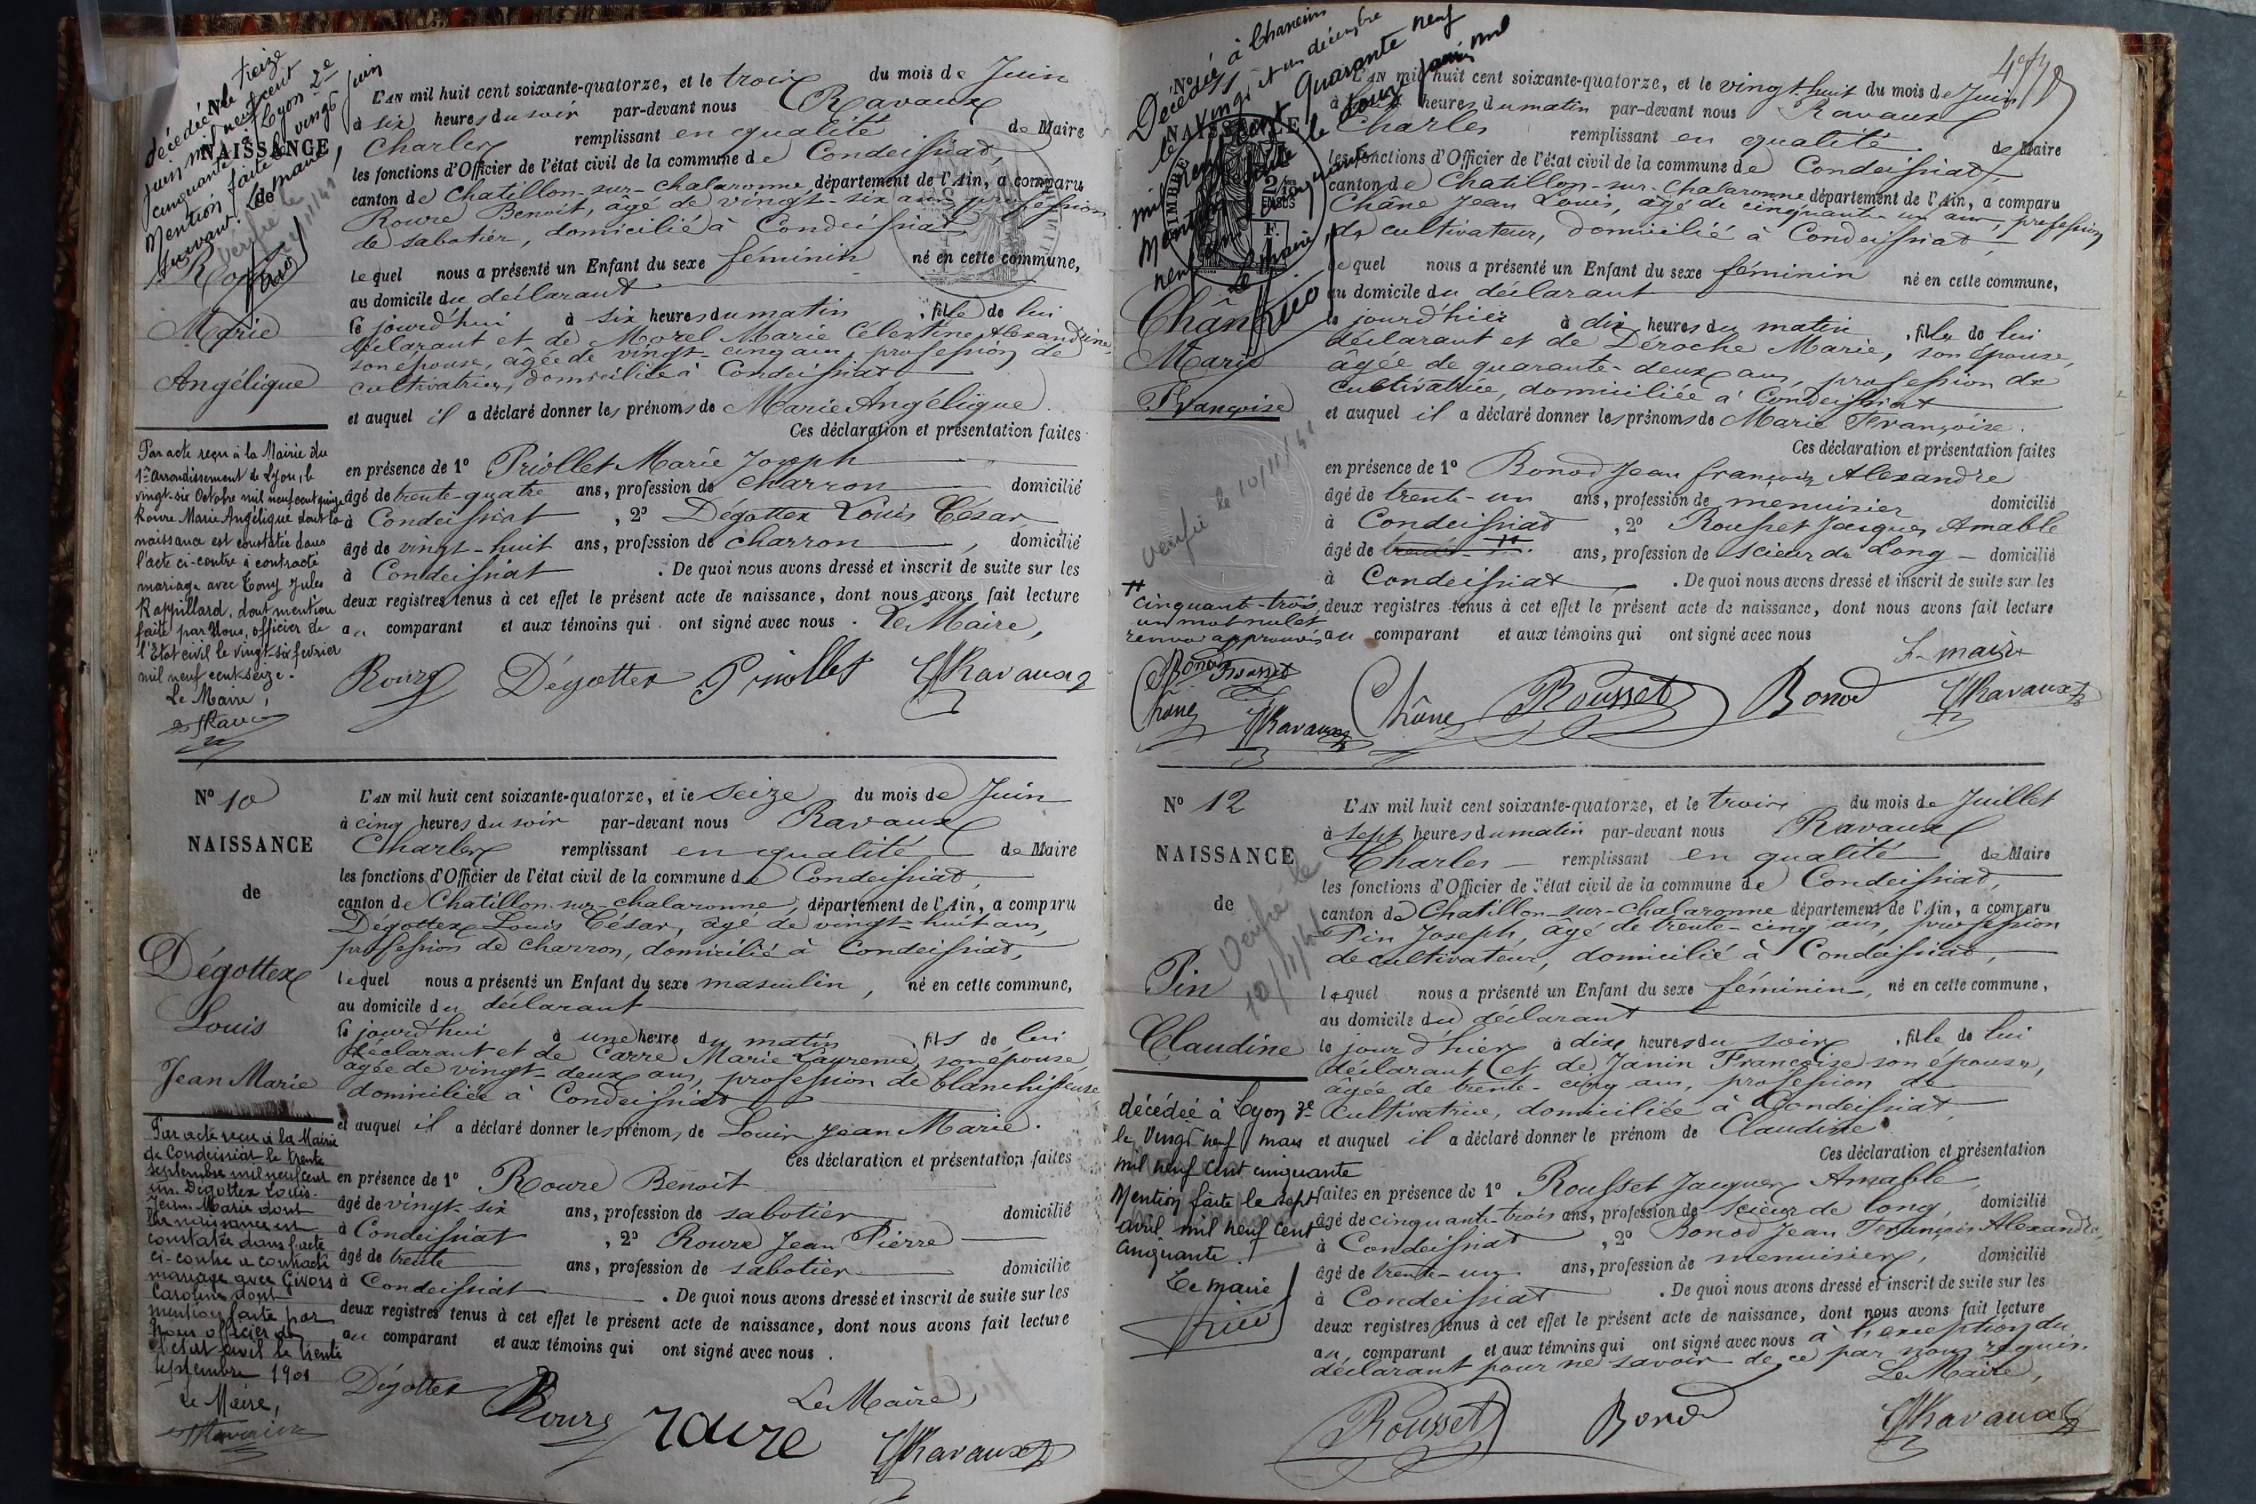 décédée le treize
juin mil neuf cent
cinquante à Lyon 2e
Mention faite le vingt juin
suivant. Le maire,
N°
NAISSANCE
de
Vérifié le
Marie
Angélique
L'AN mil huit cent soixante-quatorze, et le trois du mois de Juin
à six heures du soir par-devant nous Ravaux
Charles remplissant en qualité de Maire
les fonctions d'Officier de l'état civil de la commune de Condeissiat,
canton de Chatillon-sur-chalaronne, département de l'Ain, a comparu
Roure Benoit, âgé de vingt-six ans, profession
de sabotier, domicilié à Condeissiat,
lequel nous a présenté un Enfant du sexe féminin né en cette commune,
au domicile du déclarant
le jourd'hui à six heures du matin, fille de lui
déclarant et de Morel Marie Célestine Alexandrine,
son épouse, âgée de vingt-cinq ans, profession de
cultivatrice, domiciliée à Condeissiat
et auquel il a déclaré donner les prénoms de Marie Angélique.
Ces déclaration et présentation faites
en présence de 1° Priollet Marie Joseph
âgé de trente-quatre ans, profession de charron domicilié
à Condeissiat, 2° Dégottex Louis César
âgé de vingt-huit ans, profession de charron, domicilié
à Condeissiat. De quoi nous avons dressé et inscrit de suite sur les
deux registres tenus à cet effet le présent acte de naissance, dont nous avons fait lecture
au comparant et aux témoins qui ont signé avec nous. Le Maire,
Roure Dégottex Priollet Ravaux
Par acte reçu à la Mairie du
1er Arrondissement de Lyon, le
vingt-six Octobre mil neuf cent quinze
Roure Marie Angélique dont la
naissance est constatée dans
l'acte ci-contre a contracté
mariage avec Tony Jules
Rappillard, dont mention
faite par Nous, officier de
l'Etat civil le vingt-six février
mil neuf cent seize.
Le Maire,
N° 10
NAISSANCE
de
Dégottex
Louis
Jean Marie
L'AN mil huit cent soixante-quatorze, et le seize du mois de Juin
à cinq heures du soir par-devant nous Ravaux
Charles remplissant en qualité de Maire
les fonctions d'Officier de l'état civil de la commune de Condeissiat,
canton de Chatillon-sur-chalaronne, département de l'Ain, a comparu
Dégottex Louis César, âgé de vingt-huit ans,
profession de charron, domicilié à Condeissiat,
lequel nous a présenté un Enfant du sexe masculin, né en cette commune,
au domicile du déclarant
le jourd'hui à une heure du matin, fils de lui
déclarant et de Carre Marie Laurence, son épouse,
âgée de vingt-deux ans, profession de blanchisseuse
domiciliée à Condeissiat
et auquel il a déclaré donner les prénoms de Louis Jean Marie.
Ces déclaration et présentation faites
en présence de 1° Roure Benoit
âgé de vingt-six ans, profession de sabotier domicilié
à Condeissiat, 2° Roure Jean Pierre
âgé de trente ans, profession de sabotier domicilié
à Condeissiat. De quoi nous avons dressé et inscrit de suite sur les
deux registres tenus à cet effet le présent acte de naissance, dont nous avons fait lecture
au comparant et aux témoins qui ont signé avec nous.
Le Maire,
Dégottex Roure roure Ravaux
Par acte reçu à la Mairie
de Condeissiat le trente
septembre mil neuf cent
un. Dégottex Louis
Jean Marie dont
la naissance est
constatée dans l'acte
ci-contre a contracté
mariage avec Givors
Caroline dont
mention faite par
nous officier de
l'état civil le trente
septembre 1901
Le Maire,
Décédée à
le vingt et un décembre
mil neuf cent quarante neuf
Mention faite le douze janvier mil
neuf cent cinquante
Le maire
N°
NAISSANCE
TIMBRE
Marie
Françoise
Vérifié le 10/11/41
L'AN mil huit cent soixante-quatorze, et le vingt-huit du mois de Juin
à heures du matin par-devant nous Ravaux
Charles remplissant en qualité de Maire
les fonctions d'Officier de l'état civil de la commune de Condeissiat
canton de Chatillon-sur-Chalaronne département de l'Ain, a comparu
Chêne Jean Louis, âgé de cinquante-un ans, profession
de cultivateur, domicilié à Condeissiat
lequel nous a présenté un Enfant du sexe féminin né en cette commune,
au domicile du déclarant
le jourd'hier à dix heures du matin, fille de lui
déclarant et de Déroche Marie, son épouse,
âgée de quarante-deux ans, profession de
cultivatrice, domiciliée à Condeissiat
et auquel il a déclaré donner les prénoms de Marie Françoise.
Ces déclaration et présentation faites
en présence de 1° Bonod Jean françois Alexandre
âgé de trente-un ans, profession de menuisier domicilié
à Condeissiat, 2° Rousset Jacques Amable
âgé de ans, profession de scieur de Long domicilié
à Condeissiat. De quoi nous avons dressé et inscrit de suite sur les
deux registres tenus à cet effet le présent acte de naissance, dont nous avons fait lecture
au comparant et aux témoins qui ont signé avec nous
cinquante-trois,
un mot nul et
renvoi approuvés
Bonod Rousset
Ravaux
Le maire
Chêne Rousset Bonod Ravaux
N° 12
NAISSANCE
de
Pin
Claudine
Vérifié le
L'AN mil huit cent soixante-quatorze, et le trois du mois de Juillet
à sept heures du matin par-devant nous Ravaux
Charles remplissant en qualité de Maire
les fonctions d'Officier de l'état civil de la commune de Condeissiat,
canton de Chatillon-sur-Chalaronne département de l'Ain, a comparu
Pin Joseph, âgé de trente-cinq ans, profession
de cultivateur, domicilié à Condeissiat,
lequel nous a présenté un Enfant du sexe féminin, né en cette commune,
au domicile du déclarant
le jour d'hier à dix heures du soir, fille de lui
déclarant et de Janin Françoise son épouse,
âgée de trente-cinq ans, profession de
cultivatrice, domiciliée à Condeissiat,
et auquel il a déclaré donner le prénom de Claudine.
Ces déclaration et présentation
faites en présence de 1° Rousset Jacques Amable,
âgé de cinquante-trois ans, profession de scieur de long, domicilié
à Condeissiat, 2° Bonod Jean François Alexandre,
âgé de trente-un ans, profession de menuisier, domicilié
à Condeissiat. De quoi nous avons dressé et inscrit de suite sur les
deux registres tenus à cet effet le présent acte de naissance, dont nous avons fait lecture
au comparant et aux témoins qui ont signé avec nous à l'exception du
déclarant pour ne savoir de ce par nous requis.
Le Maire,
Rousset Bonod Ravaux
décédée à Lyon 3e
le vingt neuf mars
mil neuf cent cinquante
Mention faite le sept
avril mil neuf cent
cinquante.
Le maire